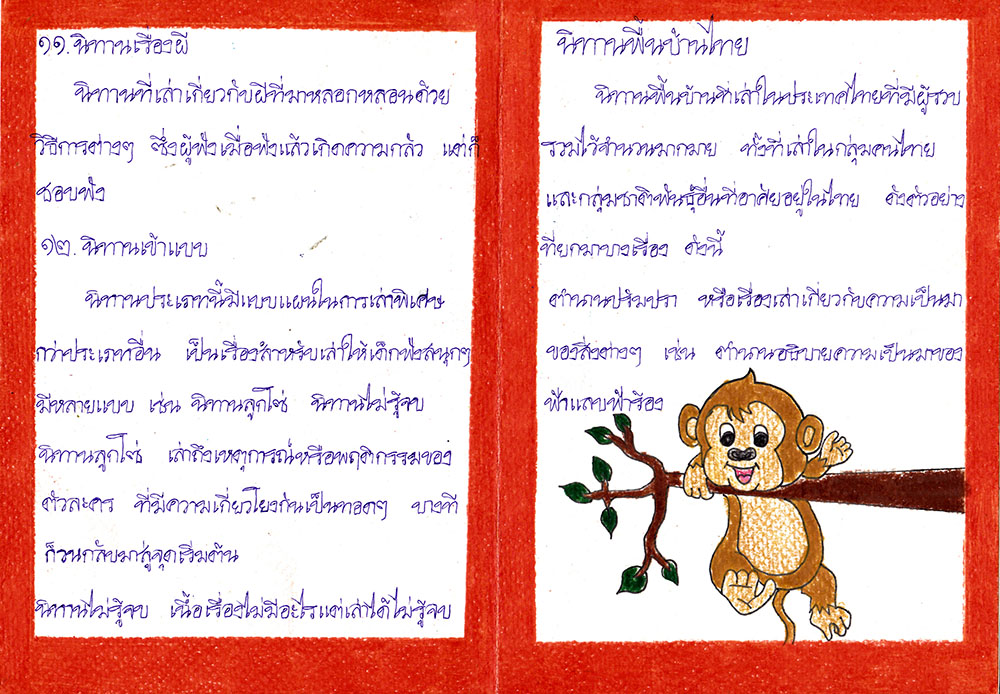 ๑๑. นิทานเรื่องผี
นิทานที่เล่าเกี่ยวกับผีที่มาหลอกหลอนด้วย
วิธีการต่างๆ ซึ่งผู้ฟังเมื่อฟังแล้วเกิดความกลัว แต่ก็
ชอบฟัง
๑๒. นิทานเข้าแบบ
นิทานประเภทนี้มีแบบแผนในการเล่าพิเศษ
กว่าประเภทอื่น เป็นเรื่องสำหรับเล่าให้เด็กฟังสนุกๆ
มีหลายแบบ เช่น นิทานลูกโซ่ นิทานไม่รู้จบ
นิทานลูกโซ่ เล่าถึงเหตุการณ์หรือพฤติกรรมของ
ตัวละคร ที่มีความเกี่ยวโยงกันเป็นทอดๆ บางที
ก็วนกลับมาสู่จุดเริ่มต้น
นิทานไม่รู้จบ เนื้อเรื่องไม่มีอะไรแต่เล่าได้ไม่รู้จบ
นิทานพื้นบ้านไทย
นิทานพื้นบ้านที่เล่าในประเทศไทยที่มีผู้รวบ
รวมไว้จำนวนมากมาย ทั้งที่เล่าในกลุ่มคนไทย
และกลุ่มชาติพันธุ์อื่นที่อาศัยอยู่ในไทย ดังตัวอย่าง
ที่ยกมาบางเรื่อง ดังนี้
ตำนานปรัมปรา หรือเรื่องเล่าเกี่ยวกับความเป็นมา
ของสิ่งต่างๆ เช่น ตำนานอธิบายความเป็นมาของ
ฟ้าแลบฟ้าร้อง